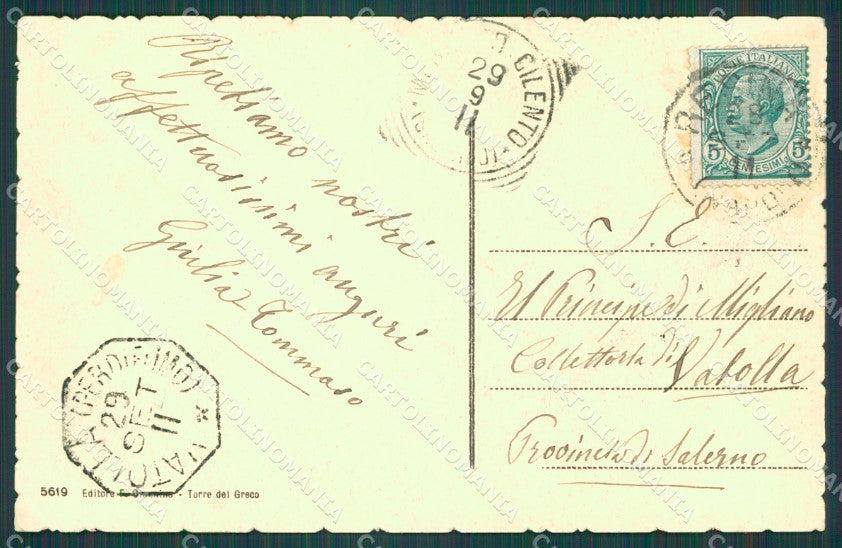 Ripetiamo nostri
affettuosissimi auguri
Giulia Tommaso
CILENTO
29
9
11
POSTE ITALIANE
5 CENTESIMI 5
S. E.
Il Principe di Migliano
Collettoria di Vatolla
Provincia di Salerno
VATOLLA (PERDIFUMO)
29
SET
11
5619 Editore - Torre del Greco
CARTOLINOMANIA